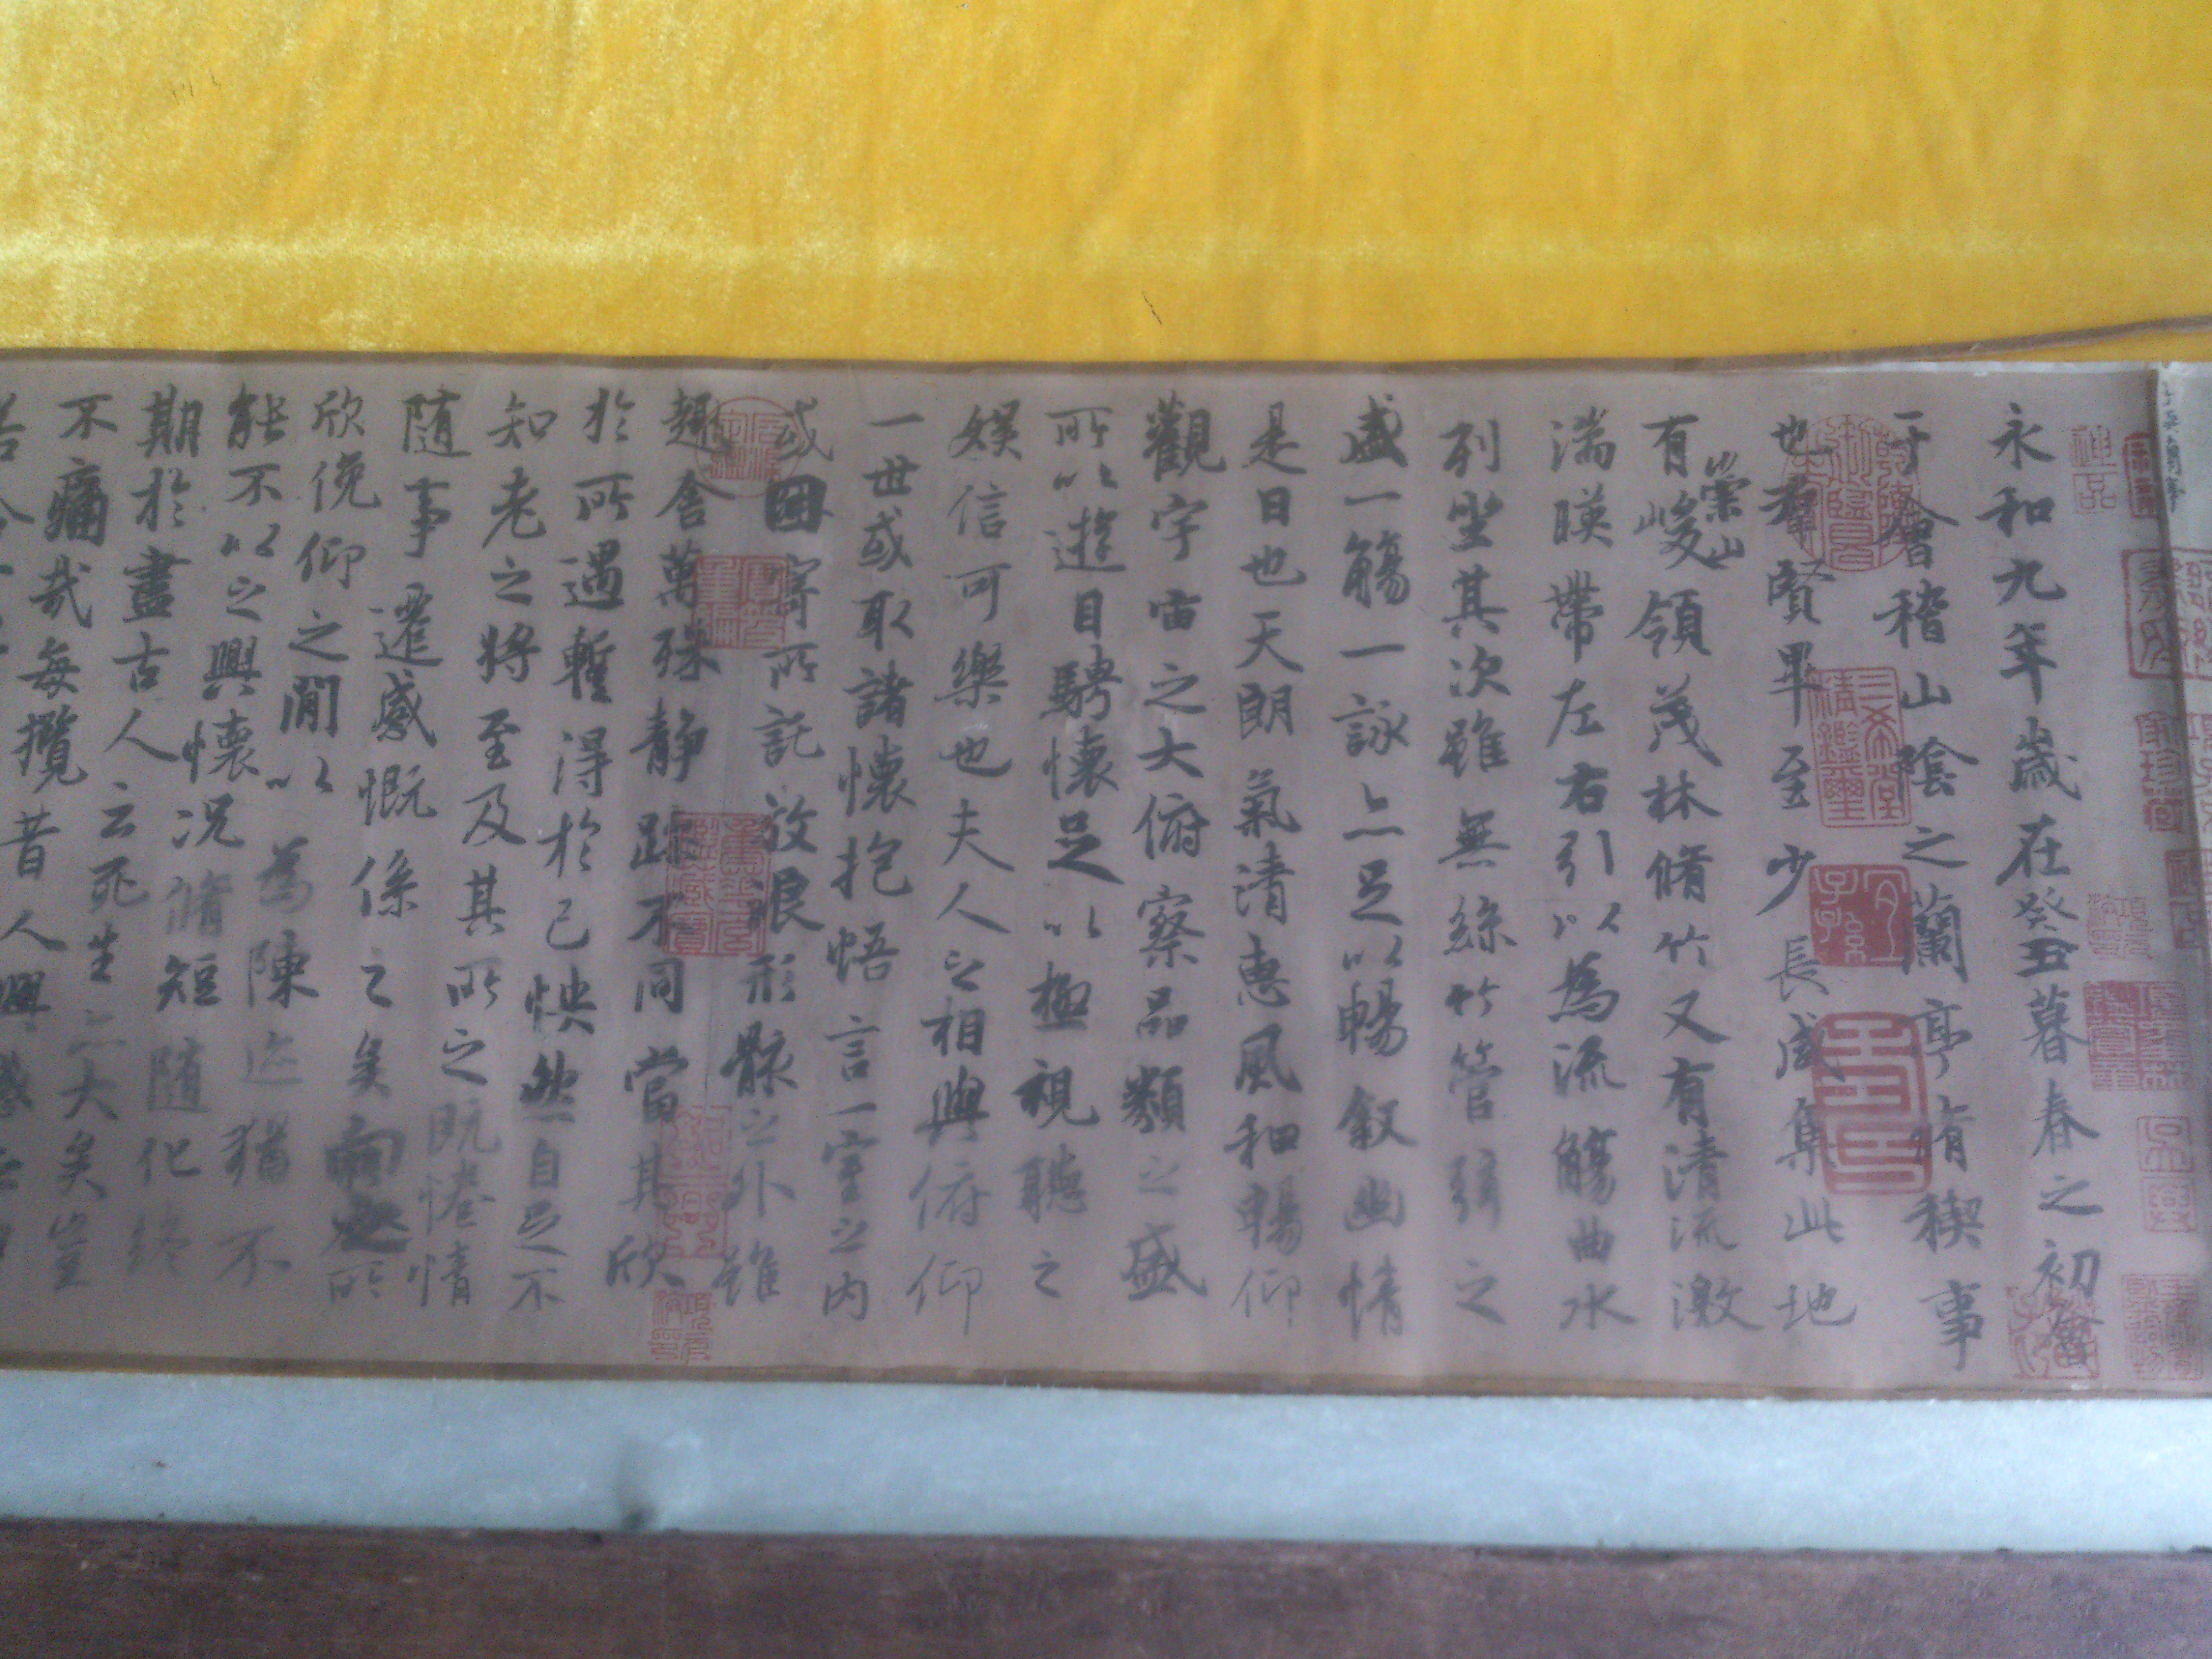 永和九年歲在癸丑暮春之初會
于會稽山陰之蘭亭脩稧事
也羣賢畢至少長咸集此地
有崇山峻領茂林脩竹又有清流激
湍暎帶左右引以為流觴曲水
列坐其次雖無絲竹管弦之
盛一觴一詠亦足以暢敘幽情
是日也天朗氣清惠風和暢仰
觀宇宙之大俯察品類之盛
所以遊目騁懷足以極視聽之
娛信可樂也夫人之相與俯仰
一世或取諸懷抱悟言一室之內
或因寄所託放浪形骸之外雖
趣舍萬殊靜躁不同當其欣
於所遇暫得於己怏然自足不
知老之將至及其所之既惓情
隨事遷感慨係之矣向之所
欣俛仰之閒以為陳迹猶不
能不以之興懷況脩短隨化終
期於盡古人云死生亦大矣豈
不痛哉每攬昔人興感